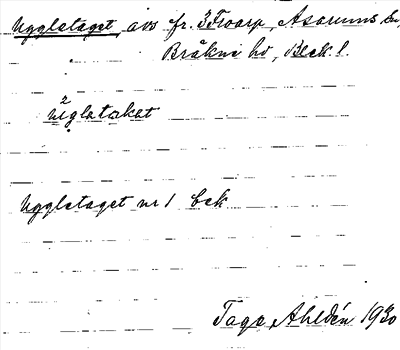 Ugglataget, avs fr. 3 Froarp, Asarums sn,
Bräkne hd, Blek. l.
2
ùglatakat
Ugglataget nr 1 bek
Tage Ahldén 1930